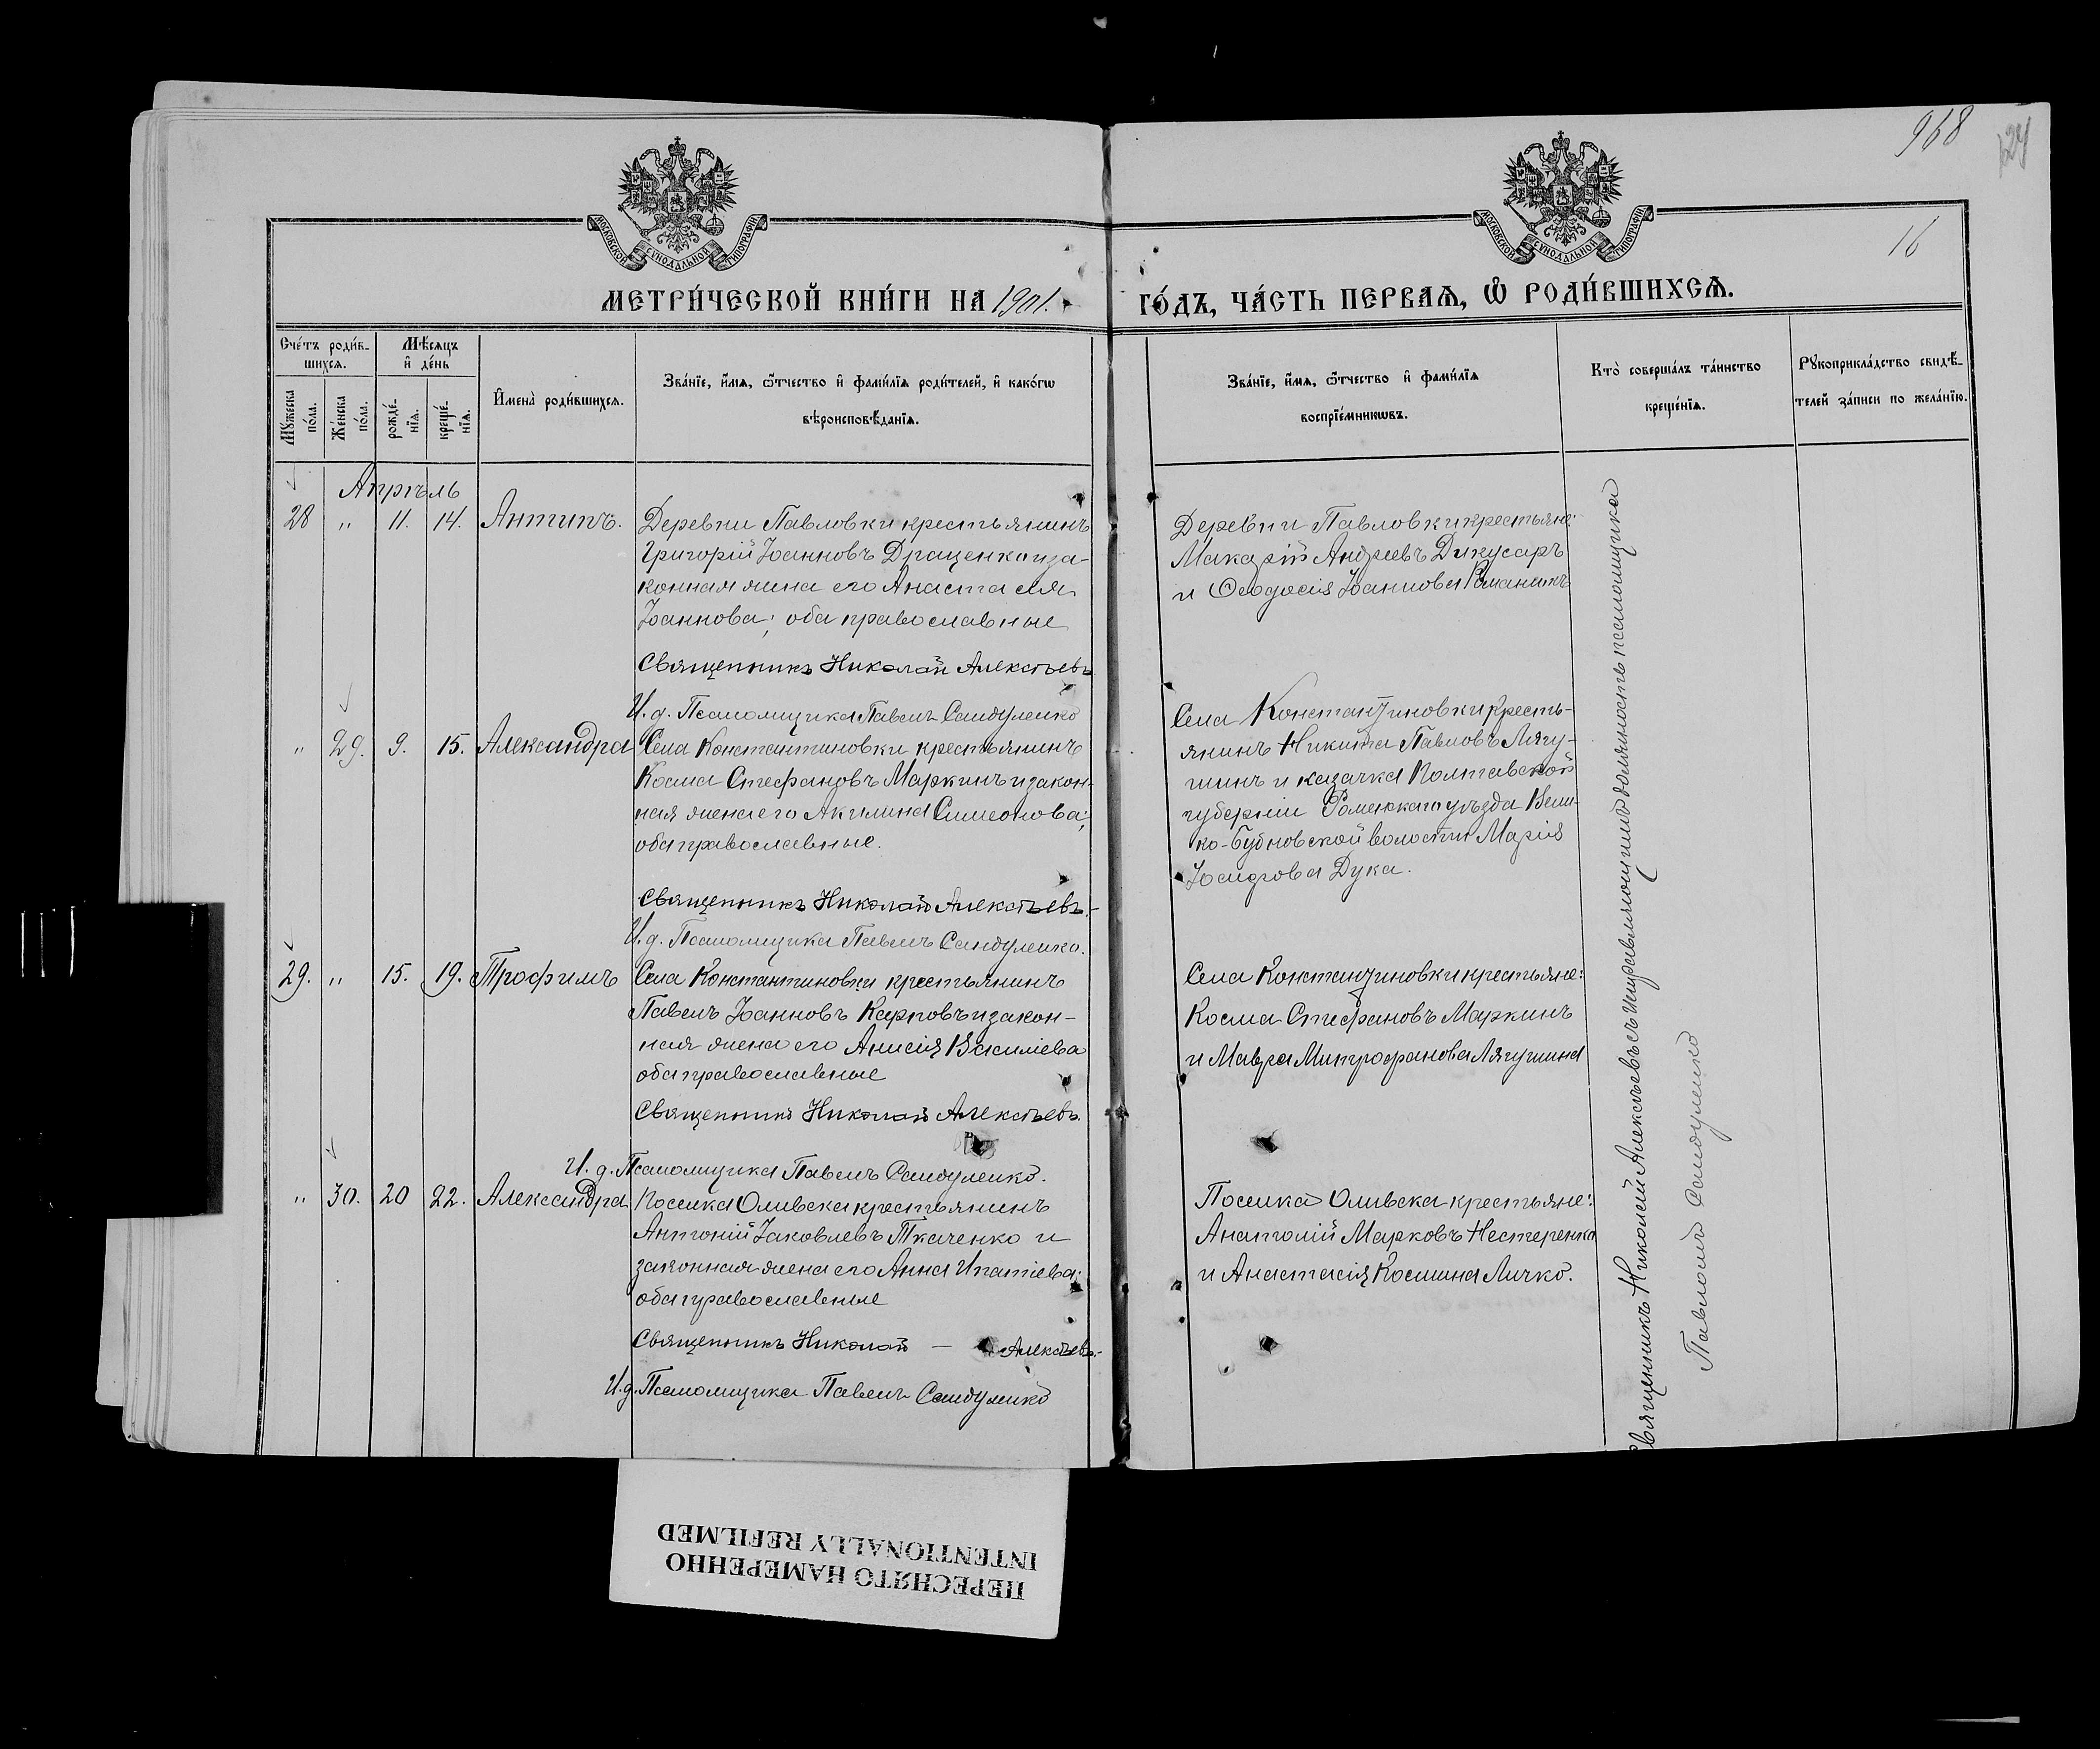 968
124
16
МОСКОВСКОЙ СѴНОДАЛЬНОЙ ТИПОГРАФІИ
МОСКОВСКОЙ СѴНОДАЛЬНОЙ ТИПОГРАФІИ
МЕТРИ́ЧЕСКОЙ КНИ́ГИ НА 1901.
ГО́ДЪ, ЧА́СТЬ ПЕРВАѦ, Ѡ҆ РОДИ́ВШИХСѦ.
Счéтъ роди́в-
шихсѧ.
Мꙋ́жеска
по́ла.
Же́нска
по́ла.
Мѣ́сѧцъ
и҆ де́нь
рожде́-
нїѧ.
креще́-
нїѧ.
И҆мена̀ роди́вшихсѧ.
Зва́нїе, и҆́мѧ, ѻ҆́тчество и҆ фами́лїѧ роди́телей, и҆ како́гѡ
вѣроисповѣ́данїѧ.
Зва́нїе, и҆́мѧ, ѻ҆́тчество и҆ фами́лїѧ
воспрїе́мникѡвъ.
Кто̀ соверша́лъ та́инство
креще́нїѧ.
Рꙋкоприкла́дство свидѣ́-
телей за́писи по жела́нїю.
Апрѣль
28 " 11. 14. Антипъ.
Деревни Павловки крестьянинъ
Григорій Іоанновъ Драценко и за-
конная жена его Анастасія
Іоаннова; оба православные
Священникъ Николай Алексѣевъ
И. д. Псаломщика Павелъ Сандуленко
Деревни Павловки крестьяне:
Макарій Андреевъ Дикусаръ
и Ѳеодосія Іоаннова Романюкъ
" 29. 9. 15. Александра
Села Константиновки крестьянинъ
Косма Стефановъ Маркинъ и закон-
ная жена его Акилина Симеонова;
оба православные.
Священникъ Николай Алексѣевъ.-
И. д. Псаломщика Павелъ Сандуленко.
Села Константиновки кресть-
янинъ Никита Павловъ Лягу-
шинъ и казачка Полтавской
губерніи Роменскаго уѣзда Вели-
ко-Будновской волости Марія
Дука.
29. " 15. 19. Трофимъ
Села Константиновки крестьянинъ
Павелъ Іоанновъ Карповъ и закон-
ная жена его Анисія Василіева
оба православные
Священникъ Николай Алексѣевъ.
И. д. Псаломщика Павелъ Сандуленко.
Села Константиновки крестьяне:
Косма Стефановъ Маркинъ
и Мавра Митрофанова Лягушина
" 30. 20 22. Александра
Поселка Оливска крестьянинъ
Антоній Іаковлевъ Ткаченко и
законная жена его Анна Ипатіева;
оба православные
Священникъ Николай — Алексѣевъ.-
И. д. Псаломщика Павелъ Сандуленко
Поселка Оливска крестьяне:
Анатолій Марковъ Нестеренко
и Анастасія Космина Личко.
Священникъ Николай Алексѣевъ съ исправляющимъ должность псаломщика
Павломъ Сандуленко
ПЕРЕСНЯТО НАМЕРЕННО
INTENTIONALLY REFILMED